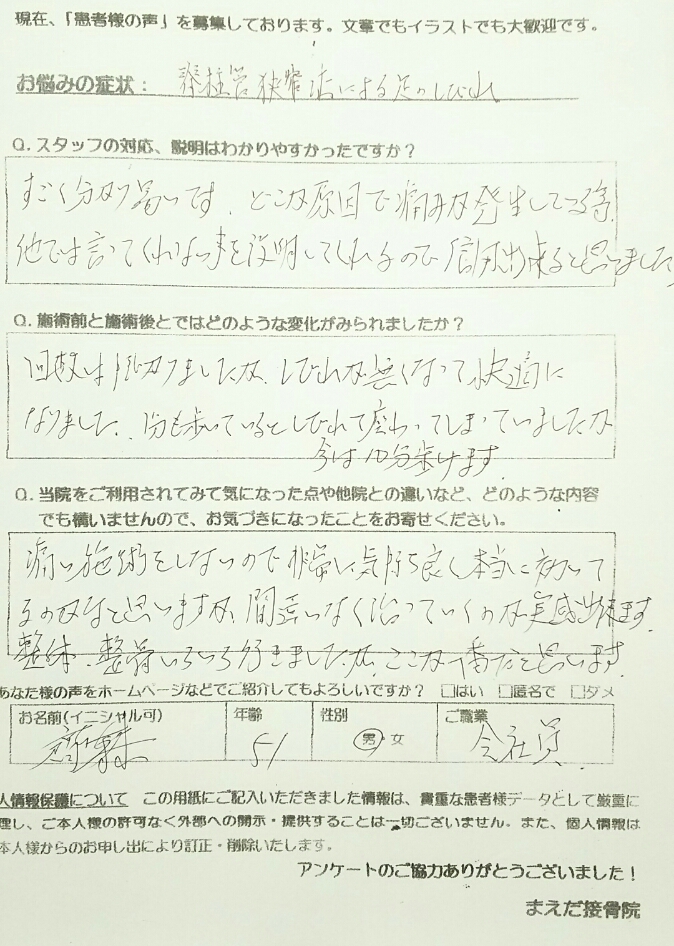 現在、「患者様の声」を募集しております。文章でもイラストでも大歓迎です。
お悩みの症状： 脊柱管狭窄症による足のしびれ
Q. スタッフの対応、説明はわかりやすかったですか？
すごく分かり易いです。どこが原因で痛みが発生している等、
他では言ってくれない事を説明してくれるので信用出来ると思いました。
Q. 施術前と施術後とではどのような変化がみられましたか？
回数は掛かりましたが、しびれが無くなって快適に
なりました。1分も歩いているとしびれて座わってしまっていましたが
今は10分歩けます
Q. 当院をご利用されてみて気になった点や他院との違いなど、どのような内容
でも構いませんので、お気づきになったことをお寄せください。
痛い施術をしないので非常に気持ち良く本当に効いて
るのかなと思いますが、間違いなく治っていくのが実感出来ます。
整体、整骨いろいろ行きましたが、ここが一番だと思います。
あなた様の声をホームページなどでご紹介してもよろしいですか？ □はい □匿名で □ダメ
お名前(イニシャル可) 年齢 性別 ご職業
51 男・女 会社員
人情報保護について この用紙にご記入いただきました情報は、貴重な患者様データとして厳重に
理し、ご本人様の許可なく外部への開示・提供することは一切ございません。また、個人情報は
本人様からのお申し出により訂正・削除いたします。
アンケートのご協力ありがとうございました！
まえだ接骨院